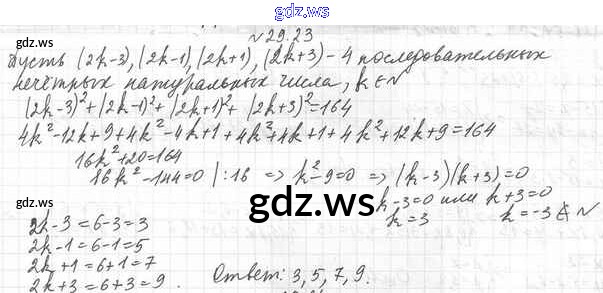 gdz.ws
№29.23
gdz.ws gdz.ws
Пусть (2k-3), (2k-1), (2k+1), (2k+3) - 4 последовательных
нечётных натуральных числа, k∈N
(2k-3)²+(2k-1)²+(2k+1)²+(2k+3)²=164
4k²-12k+9+4k²-4k+1+4k²+4k+1+4k²+12k+9=164
16k²+20=164
16k²-144=0 |:16 => k²-9=0 => (k-3)(k+3)=0
gdz.ws
k-3=0 или k+3=0
k=3 k=-3∉N
2k-3=6-3=3
2k-1=6-1=5
2k+1=6+1=7
2k+3=6+3=9.
Ответ: 3, 5, 7, 9.
gdz.ws gdz.ws